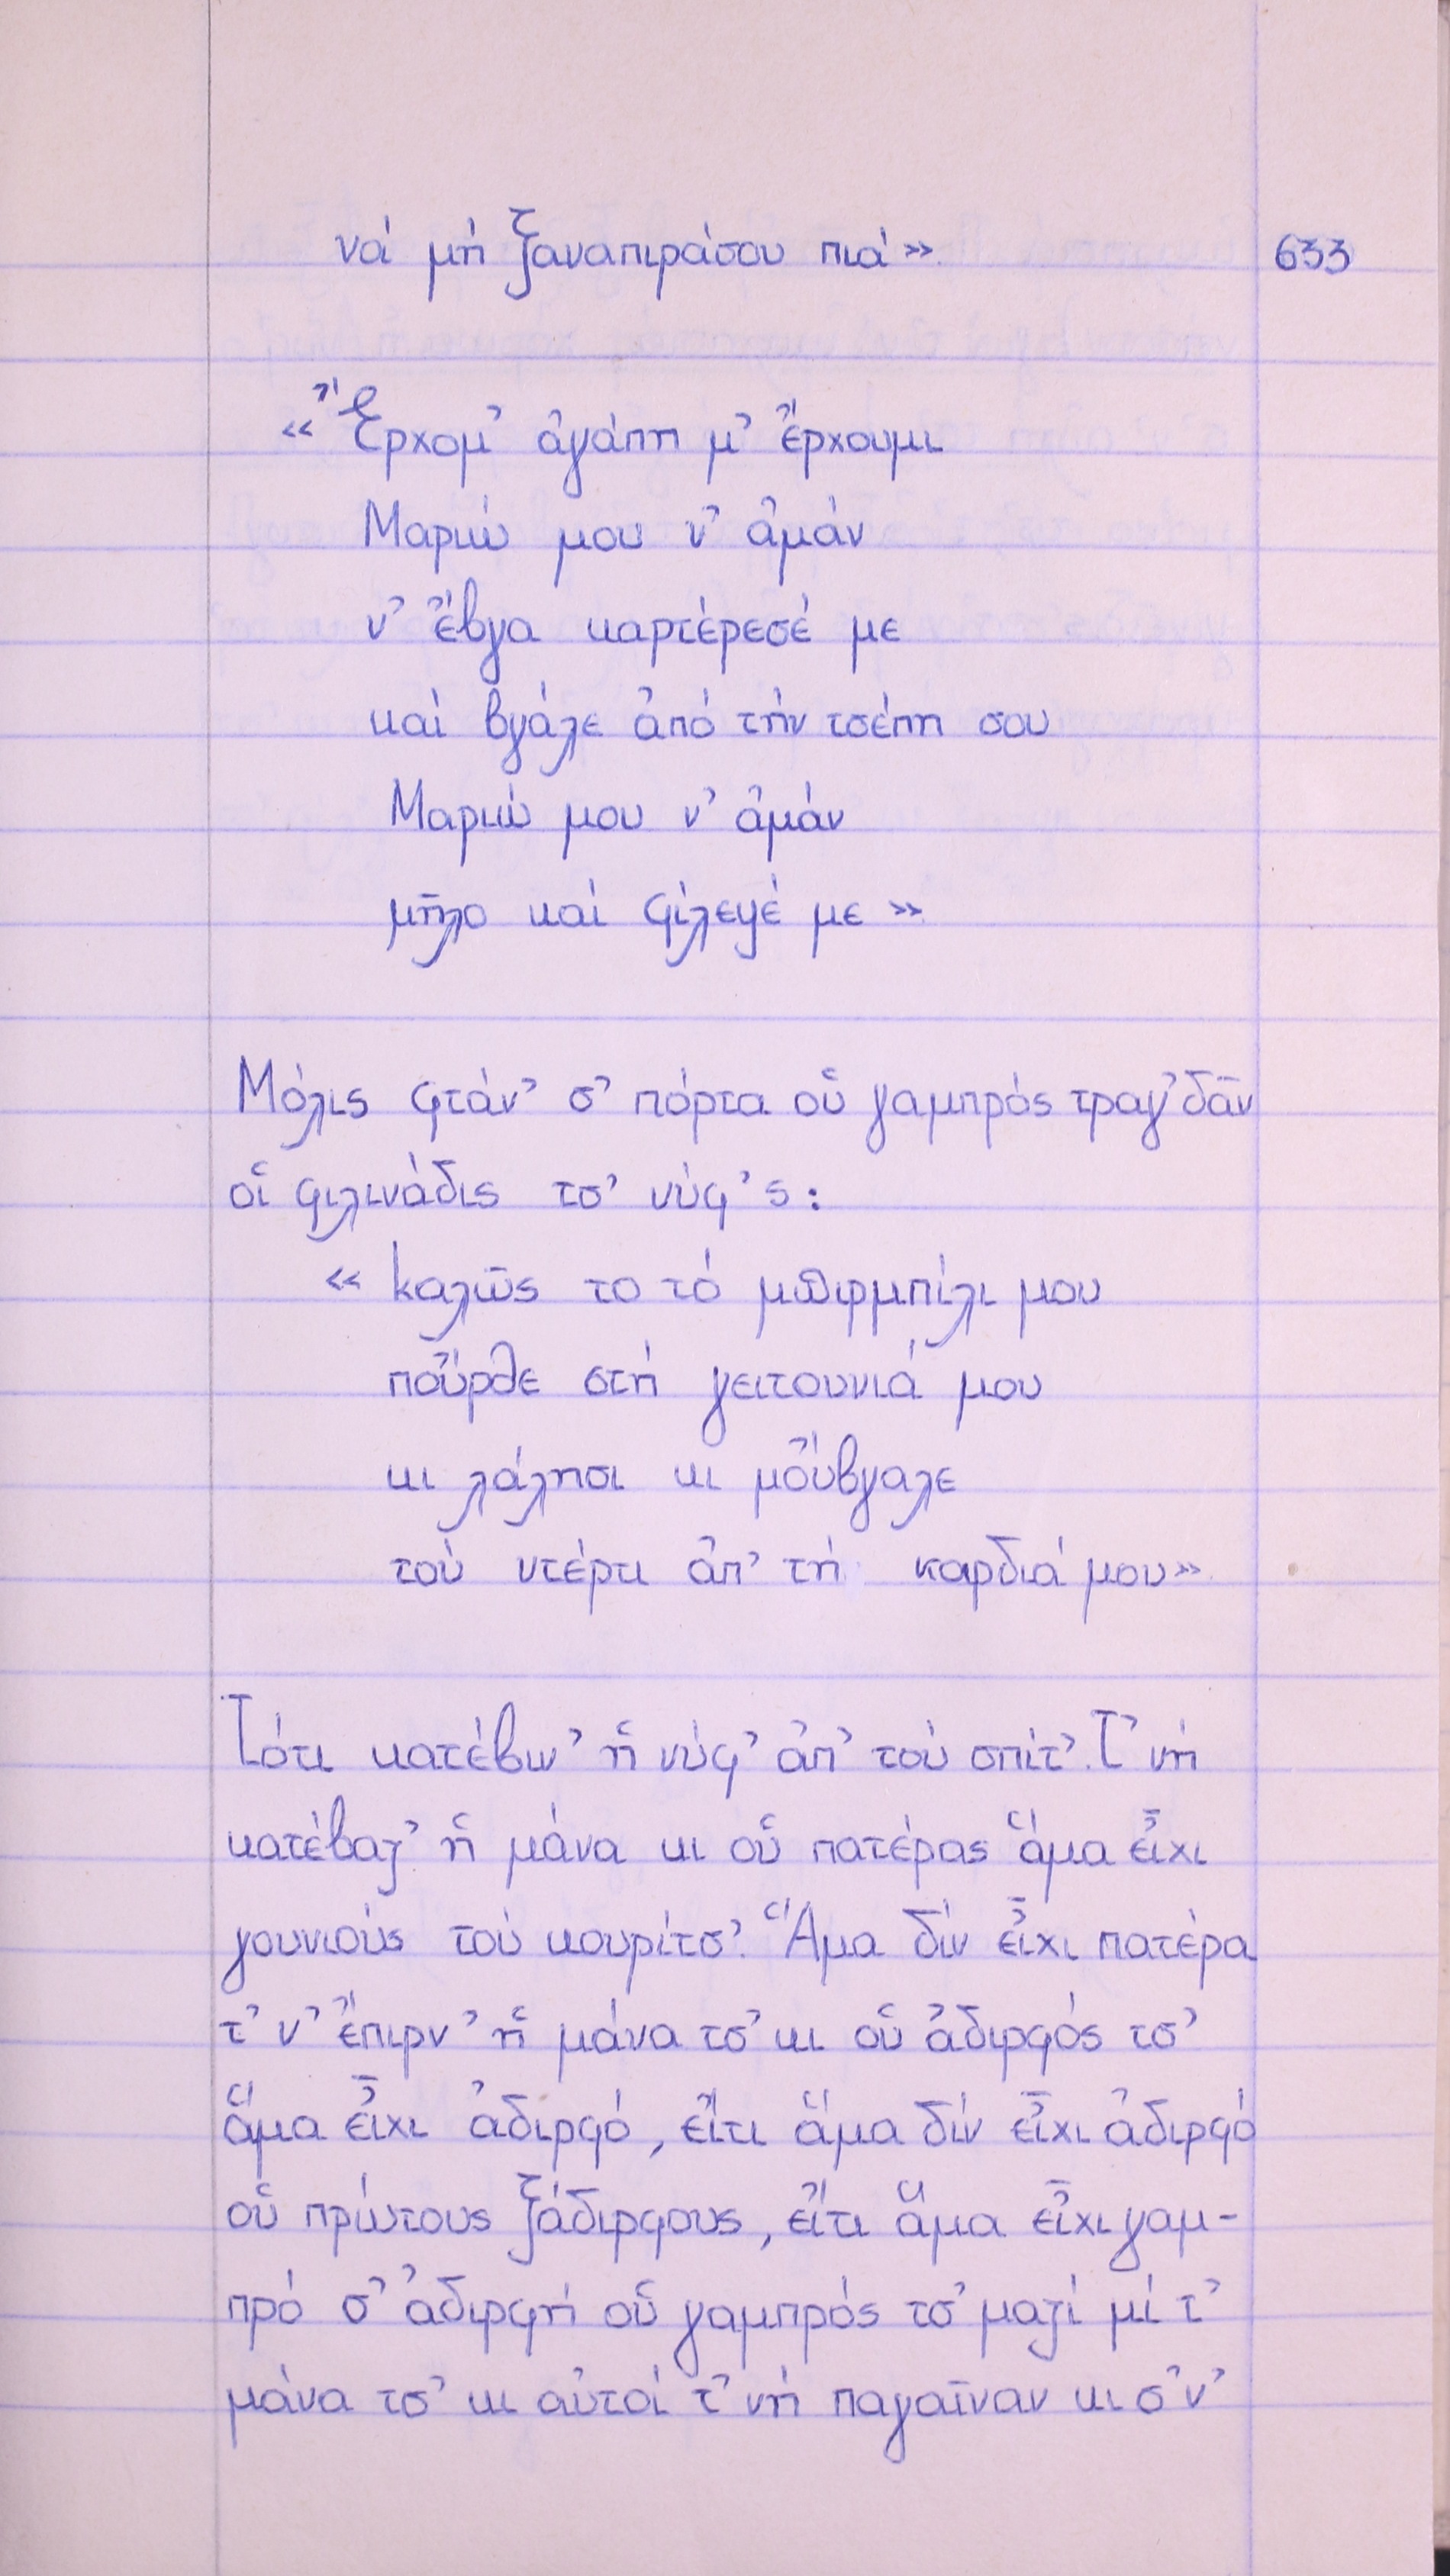 νά μή ξαναπιράσου πιά»
633
«Ἔρχομ' ἀγάπη μ' ἔρχουμι
Μαριώ μου ν' ἀμάν
ν' ἔβγα καρτέρεσέ με
καί βγάλε ἀπό τήν τσέπη σου
Μαριώ μου ν' ἀμάν
μῆλο καί φίλεψέ με»
Μόλις φτάν' σ' πόρτα οὗ γαμπρός τραγ'δᾶν
οἱ φιλινάδις τσ' νύφ'ς:
«Καλῶς το τό μπιρμπίλι μου
ποὖρθε στή γειτουνιά μου
κι λάλησι κι μοὔβγαλε
τού ντέρτι ἀπ' τή καρδιά μου»
Τότι κατέβιν' ἡ νύφ' ἀπ' τού σπίτ'. Τ' νή
κατέβαζ' ἡ μάνα κι οὗ πατέρας ἅμα εἶχι
γουνιούς τού κουρίτσ'. Ἅμα δίν εἶχι πατέρα
τ' ν' ἔπιρν' ἡ μάνα τσ' κι οὗ ἀδιρφός τσ'
ἅμα εἶχι ἀδιρφό, εἴτι ἅμα δίν εἶχι ἀδιρφό
οὗ πρώτους ξάδιρφους, εἴτι ἅμα εἶχι γαμ-
πρό σ' ἀδιρφή οὗ γαμπρός τσ' μαζί μί τ'
μάνα τσ' κι αὐτοί τ' νή παγαῖναν κι σ' ν'